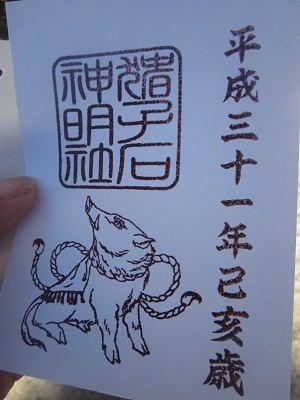 平成三十一年己亥歳
猪子石
神明社